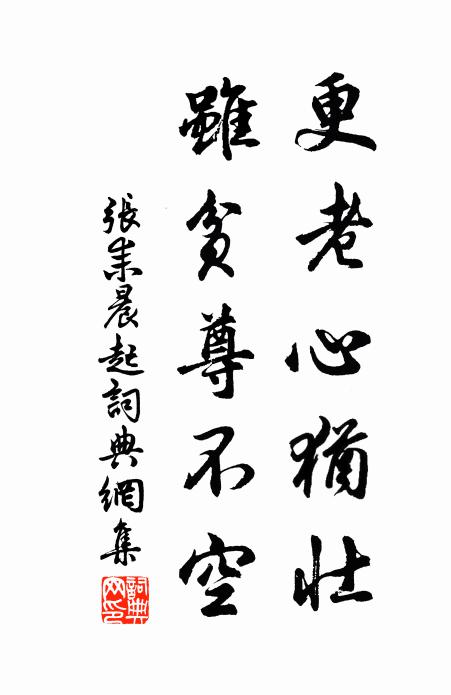 更老心猶壯
雖貧尊不空
張耒晨起詞典網集
詞典網印